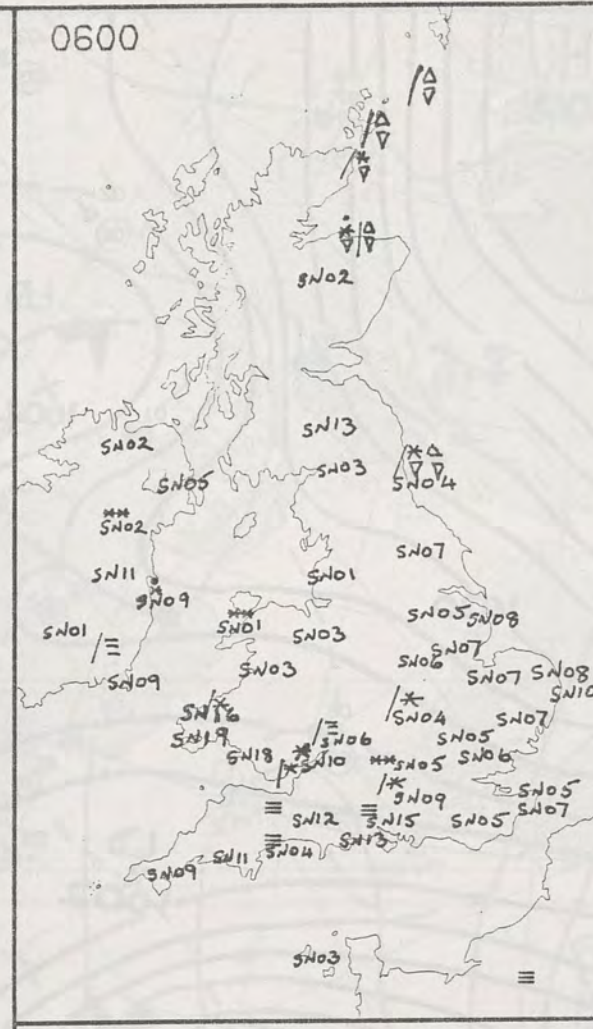 0600
SN02
SN13
SN02
SN03
SN05
SN04
SN02
SN07
SN11
SN01
SN09
SN05
SN08
SN01
SN01
SN03
SN07
SN06
SN08
SN09
SN03
SN07
SN10
SN16
SN04
SN07
SN19
SN06
SN05
SN18
SN10
SN05
SN06
SN09
SN05
SN12
SN15
SN05
SN07
SN13
SN04
SN11
SN09
SN03